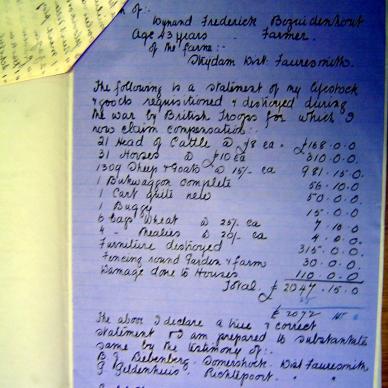 of :-
Wynand Frederick Bezuidenhout
Age 43 years - Farmer.
of the farm :-
Dist: Fauresmith.
The following is a statement of my livestock
& goods requisitioned & destroyed during
the war by British Troops for which I
now claim compensation :-
21 Head of Cattle @ £8 ea. £168.0.0
31 Horses @ £10 ea 310.0.0
1309 Sheep & Goats @ 15/- ea 981.15.0
1 Buckwaggon complete 56.10.0
1 Cart quite new 50.0.0
1 Buggy 15.0.0
6 bags Wheat @ 25/- ea 7.10.0
4 " Mealies @ 20/- ea 4.0.0
Furniture destroyed 315.0.0
Fencing round Garden & farm 30.0.0
Damage done to Houses 110.0.0
Total. £2047.15.0
£2072
The above I declare a true & correct
statement & I am prepared to substantiate
same by the testimony of :-
B. J. Bebenberg. Somershoek. Dist Fauresmith
G Goldenhuis.